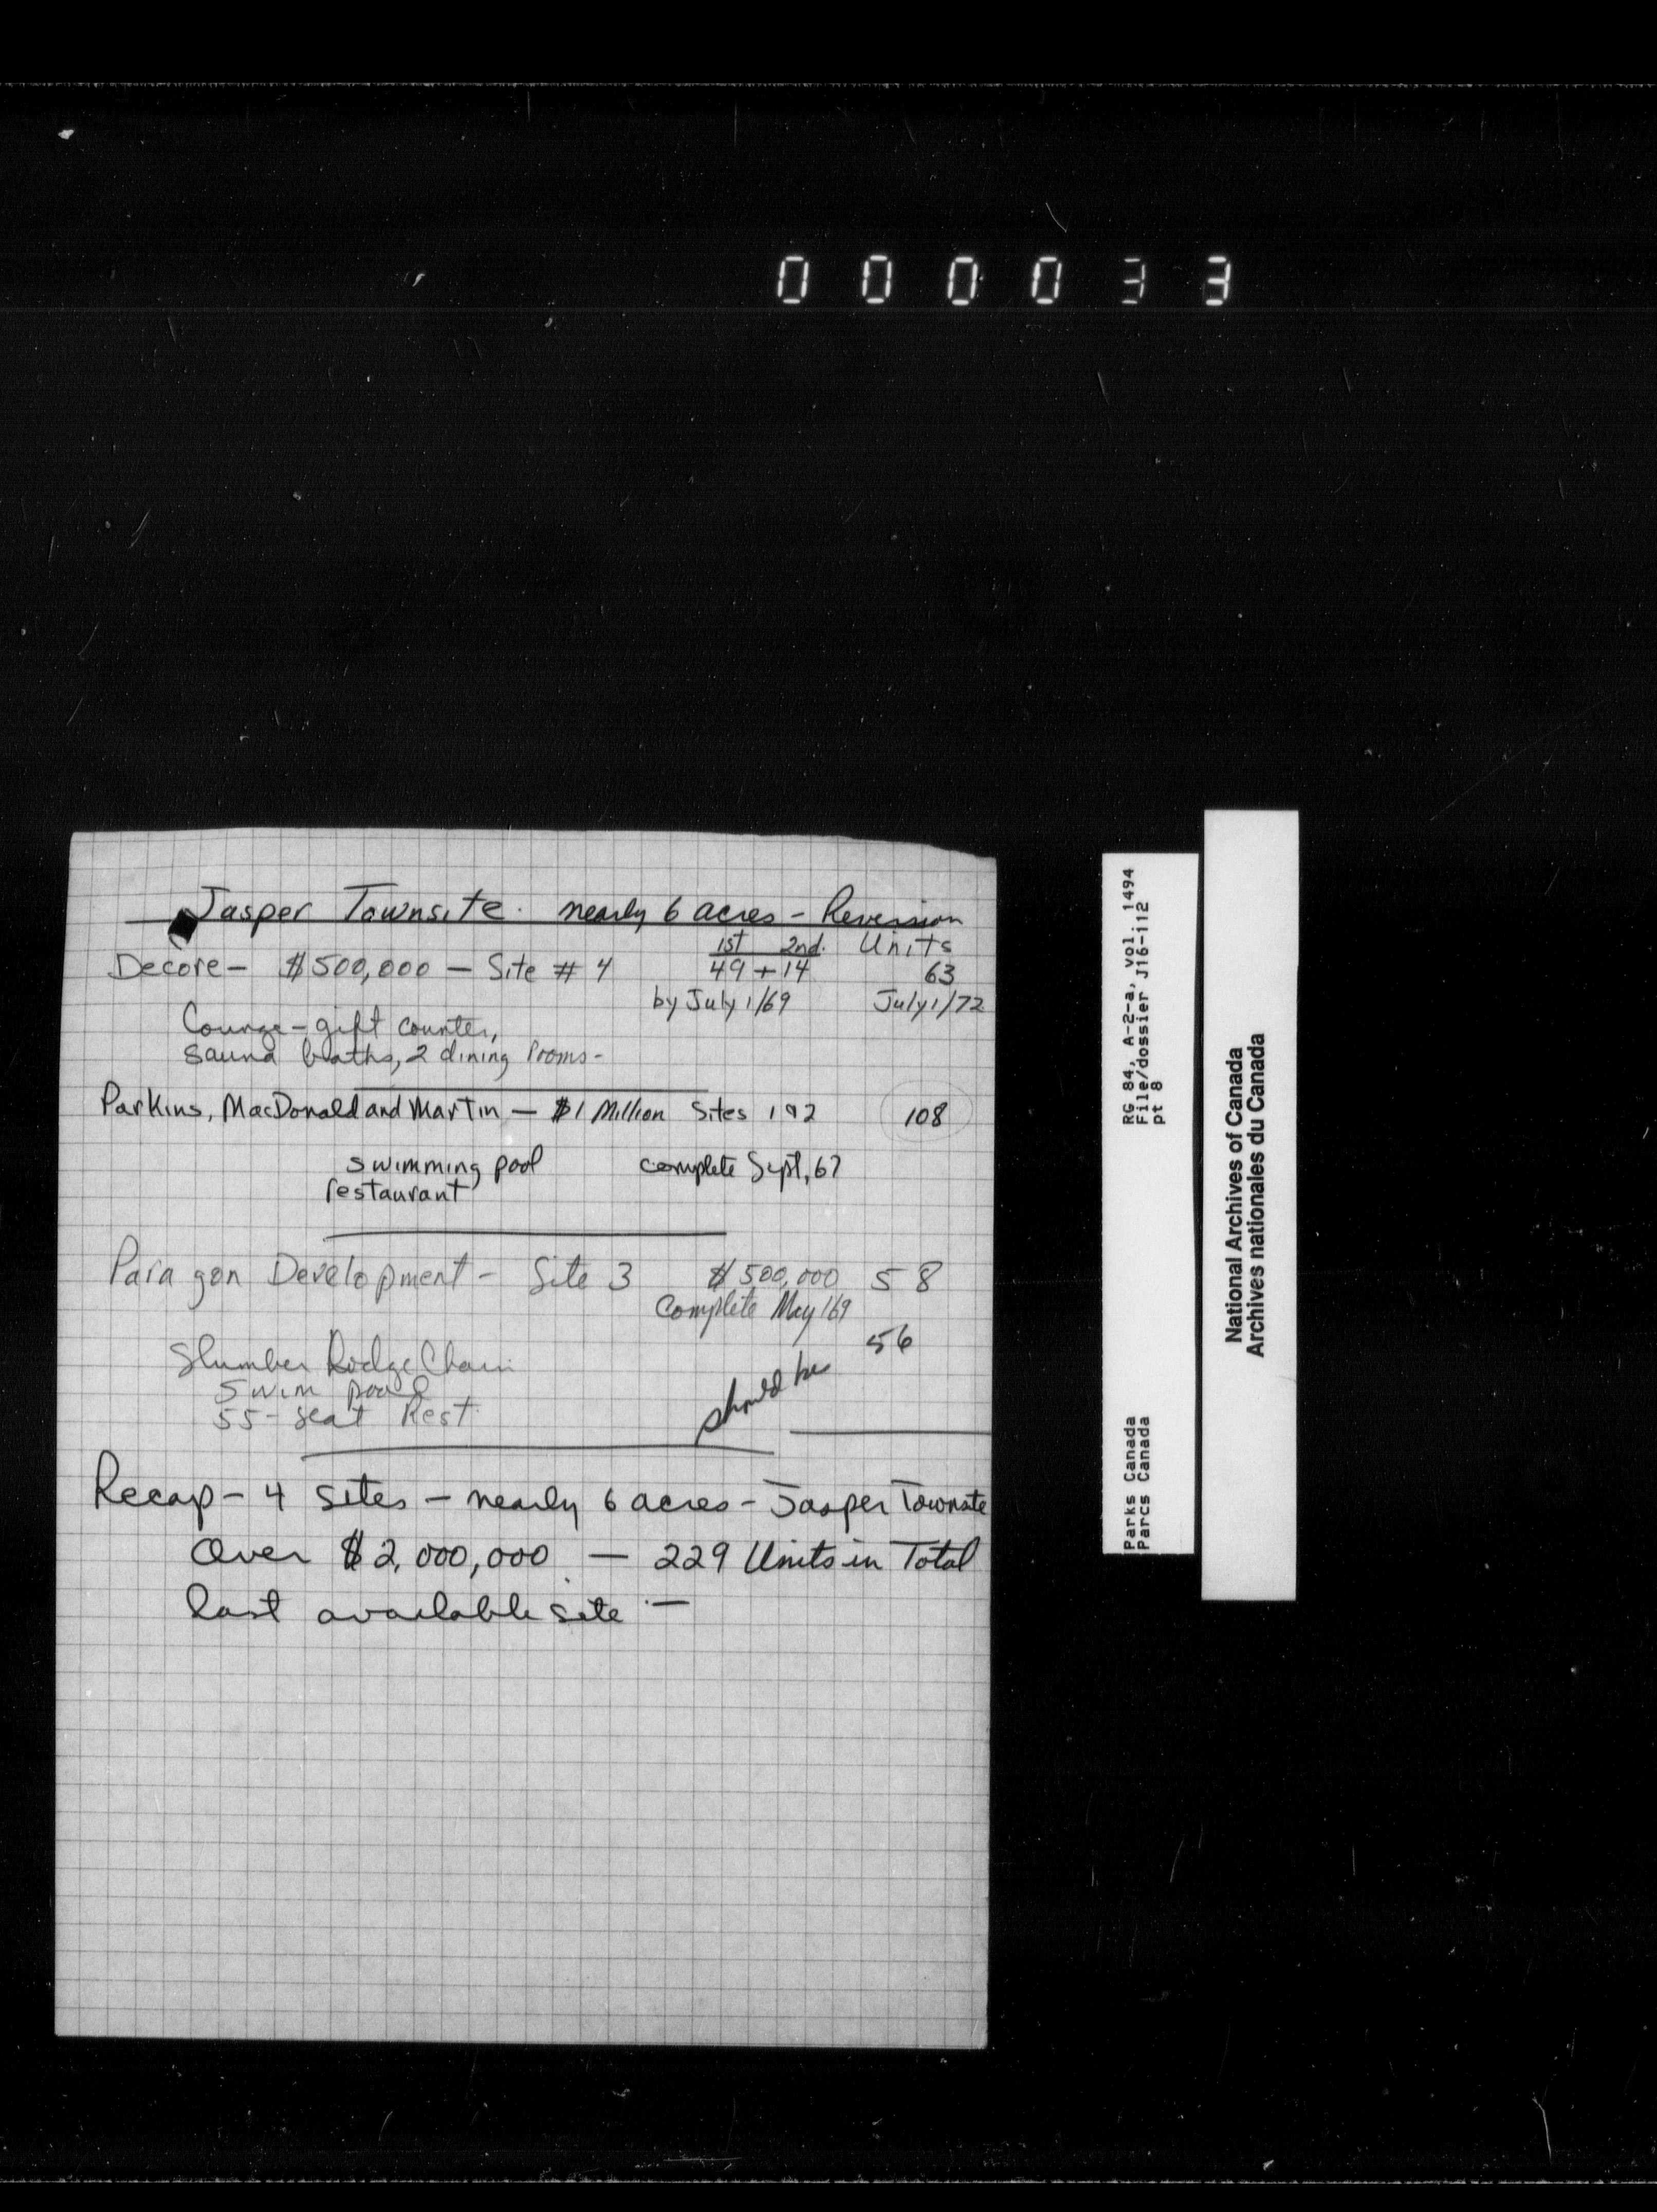 000033
Jasper Townsite. nearly 6 acres - Reversion
1st 2nd. Units
Decore - $500,000 - Site # 4 49 + 14 63
by July 1/69 July 1/72
Lounge - gift counter,
sauna baths, 2 dining rooms -
Parkins, MacDonald and Martin - $1 Million Sites 1 & 2 108
swimming pool complete Sept, 67
restaurant
Paragon Development - Site 3 $500,000 58
Complete May 1/69
56
should be
Slumber Lodge Chain
Swim pool
55-seat Rest.
Recap - 4 sites - nearly 6 acres - Jasper Townsite
Over $2,000,000 - 229 Units in Total
last available site -
RG 84, A-2-a, vol. 1494
File/dossier J16-112
pt 8
Parks Canada
Parcs Canada
National Archives of Canada
Archives nationales du Canada